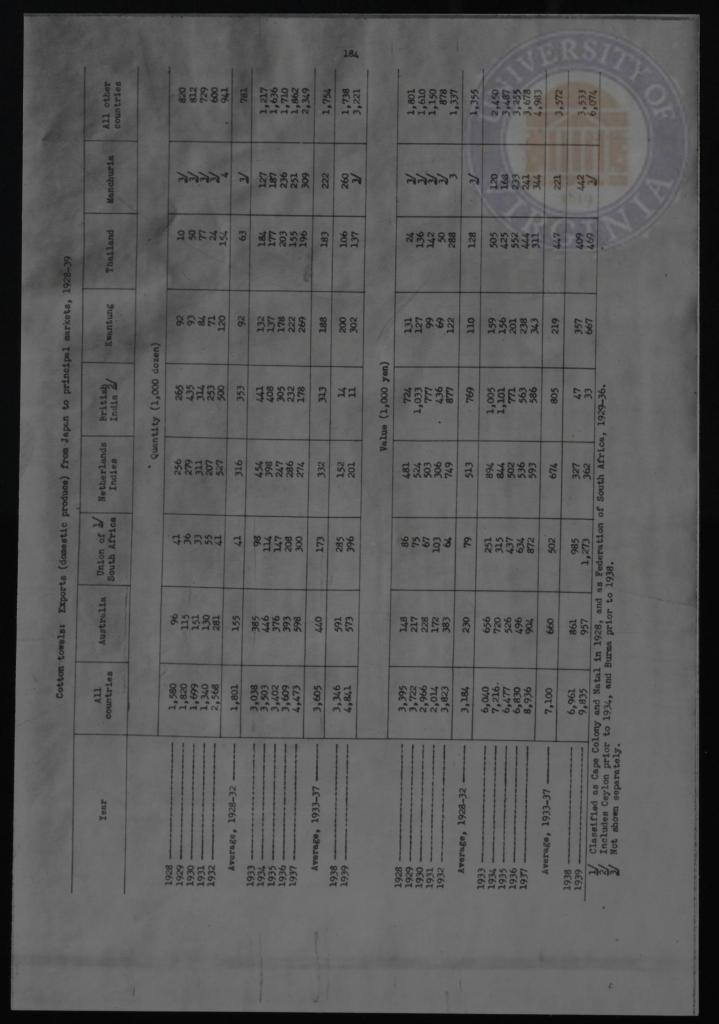 184
Cotton towels: Exports (domestic produce) from Japan to principal markets, 1928-39
Year | All countries | Australia | Union of 1/ South Africa | Netherlands Indies | British India 2/ | Kwantung | Thailand | Manchuria | All other countries
Quantity (1,000 dozen)
1928 | 1,580 | 96 | 41 | 256 | 265 | 92 | 10 | 3/ | 820
1929 | 1,820 | 115 | 36 | 279 | 435 | 93 | 50 | 3/ | 812
1930 | 1,699 | 151 | 33 | 311 | 314 | 84 | 77 | 3/ | 729
1931 | 1,340 | 130 | 55 | 207 | 253 | 71 | 24 | 3/ | 600
1932 | 2,568 | 281 | 41 | 527 | 500 | 120 | 154 | 4 | 941
Average, 1928-32 | 1,801 | 155 | 41 | 316 | 353 | 92 | 63 | 3/ | 781
1933 | 3,038 | 385 | 98 | 454 | 441 | 132 | 184 | 127 | 1,217
1934 | 3,503 | 446 | 114 | 398 | 408 | 137 | 177 | 187 | 1,636
1935 | 3,402 | 376 | 147 | 247 | 305 | 178 | 203 | 236 | 1,710
1936 | 3,609 | 393 | 208 | 286 | 232 | 222 | 155 | 251 | 1,862
1937 | 4,473 | 598 | 300 | 274 | 178 | 269 | 196 | 309 | 2,349
Average, 1933-37 | 3,605 | 440 | 173 | 332 | 313 | 188 | 183 | 222 | 1,754
1938 | 3,346 | 591 | 285 | 152 | 14 | 200 | 106 | 260 | 1,738
1939 | 4,841 | 573 | 396 | 201 | 11 | 302 | 137 | 3/ | 3,221
Value (1,000 yen)
1928 | 3,395 | 148 | 86 | 481 | 724 | 131 | 24 | 3/ | 1,801
1929 | 3,722 | 217 | 75 | 524 | 1,033 | 127 | 136 | 3/ | 1,610
1930 | 2,966 | 228 | 67 | 503 | 777 | 99 | 142 | 3/ | 1,150
1931 | 2,014 | 172 | 103 | 306 | 436 | 69 | 50 | 3/ | 878
1932 | 3,823 | 383 | 64 | 749 | 877 | 122 | 288 | 3 | 1,337
Average, 1928-32 | 3,184 | 230 | 79 | 513 | 769 | 110 | 128 | 3/ | 1,355
1933 | 6,040 | 656 | 251 | 894 | 1,005 | 159 | 505 | 120 | 2,450
1934 | 7,216 | 720 | 315 | 844 | 1,101 | 156 | 425 | 168 | 3,487
1935 | 6,477 | 526 | 437 | 502 | 771 | 201 | 552 | 233 | 3,255
1936 | 6,830 | 496 | 634 | 536 | 563 | 238 | 444 | 241 | 3,678
1937 | 8,936 | 904 | 872 | 593 | 586 | 343 | 311 | 344 | 4,983
Average, 1933-37 | 7,100 | 660 | 502 | 674 | 805 | 219 | 447 | 221 | 3,572
1938 | 6,961 | 861 | 985 | 327 | 47 | 357 | 409 | 442 | 3,533
1939 | 9,835 | 957 | 1,273 | 362 | 33 | 667 | 469 | 3/ | 6,074
1/ Classified as Cape Colony and Natal in 1928, and as Federation of South Africa, 1929-36.
2/ Includes Ceylon prior to 1934, and Burma prior to 1938.
3/ Not shown separately.